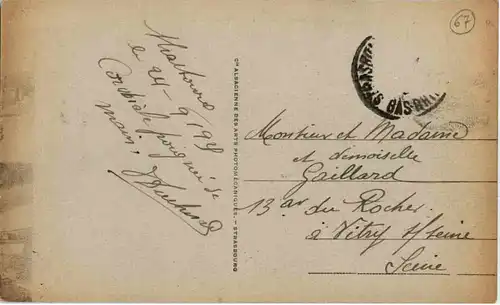 Strasbourg
le 24-9-1921
Cordiale poignée de
main.
Cie ALSACIENNE DES ARTS PHOTOMÉCANIQUES. — STRASBOURG
67
STRASB BAS-RHIN
Monsieur et Madame
et Demoiselle
Gaillard
13 av. du Rocher
à Vitry s/seine
Seine